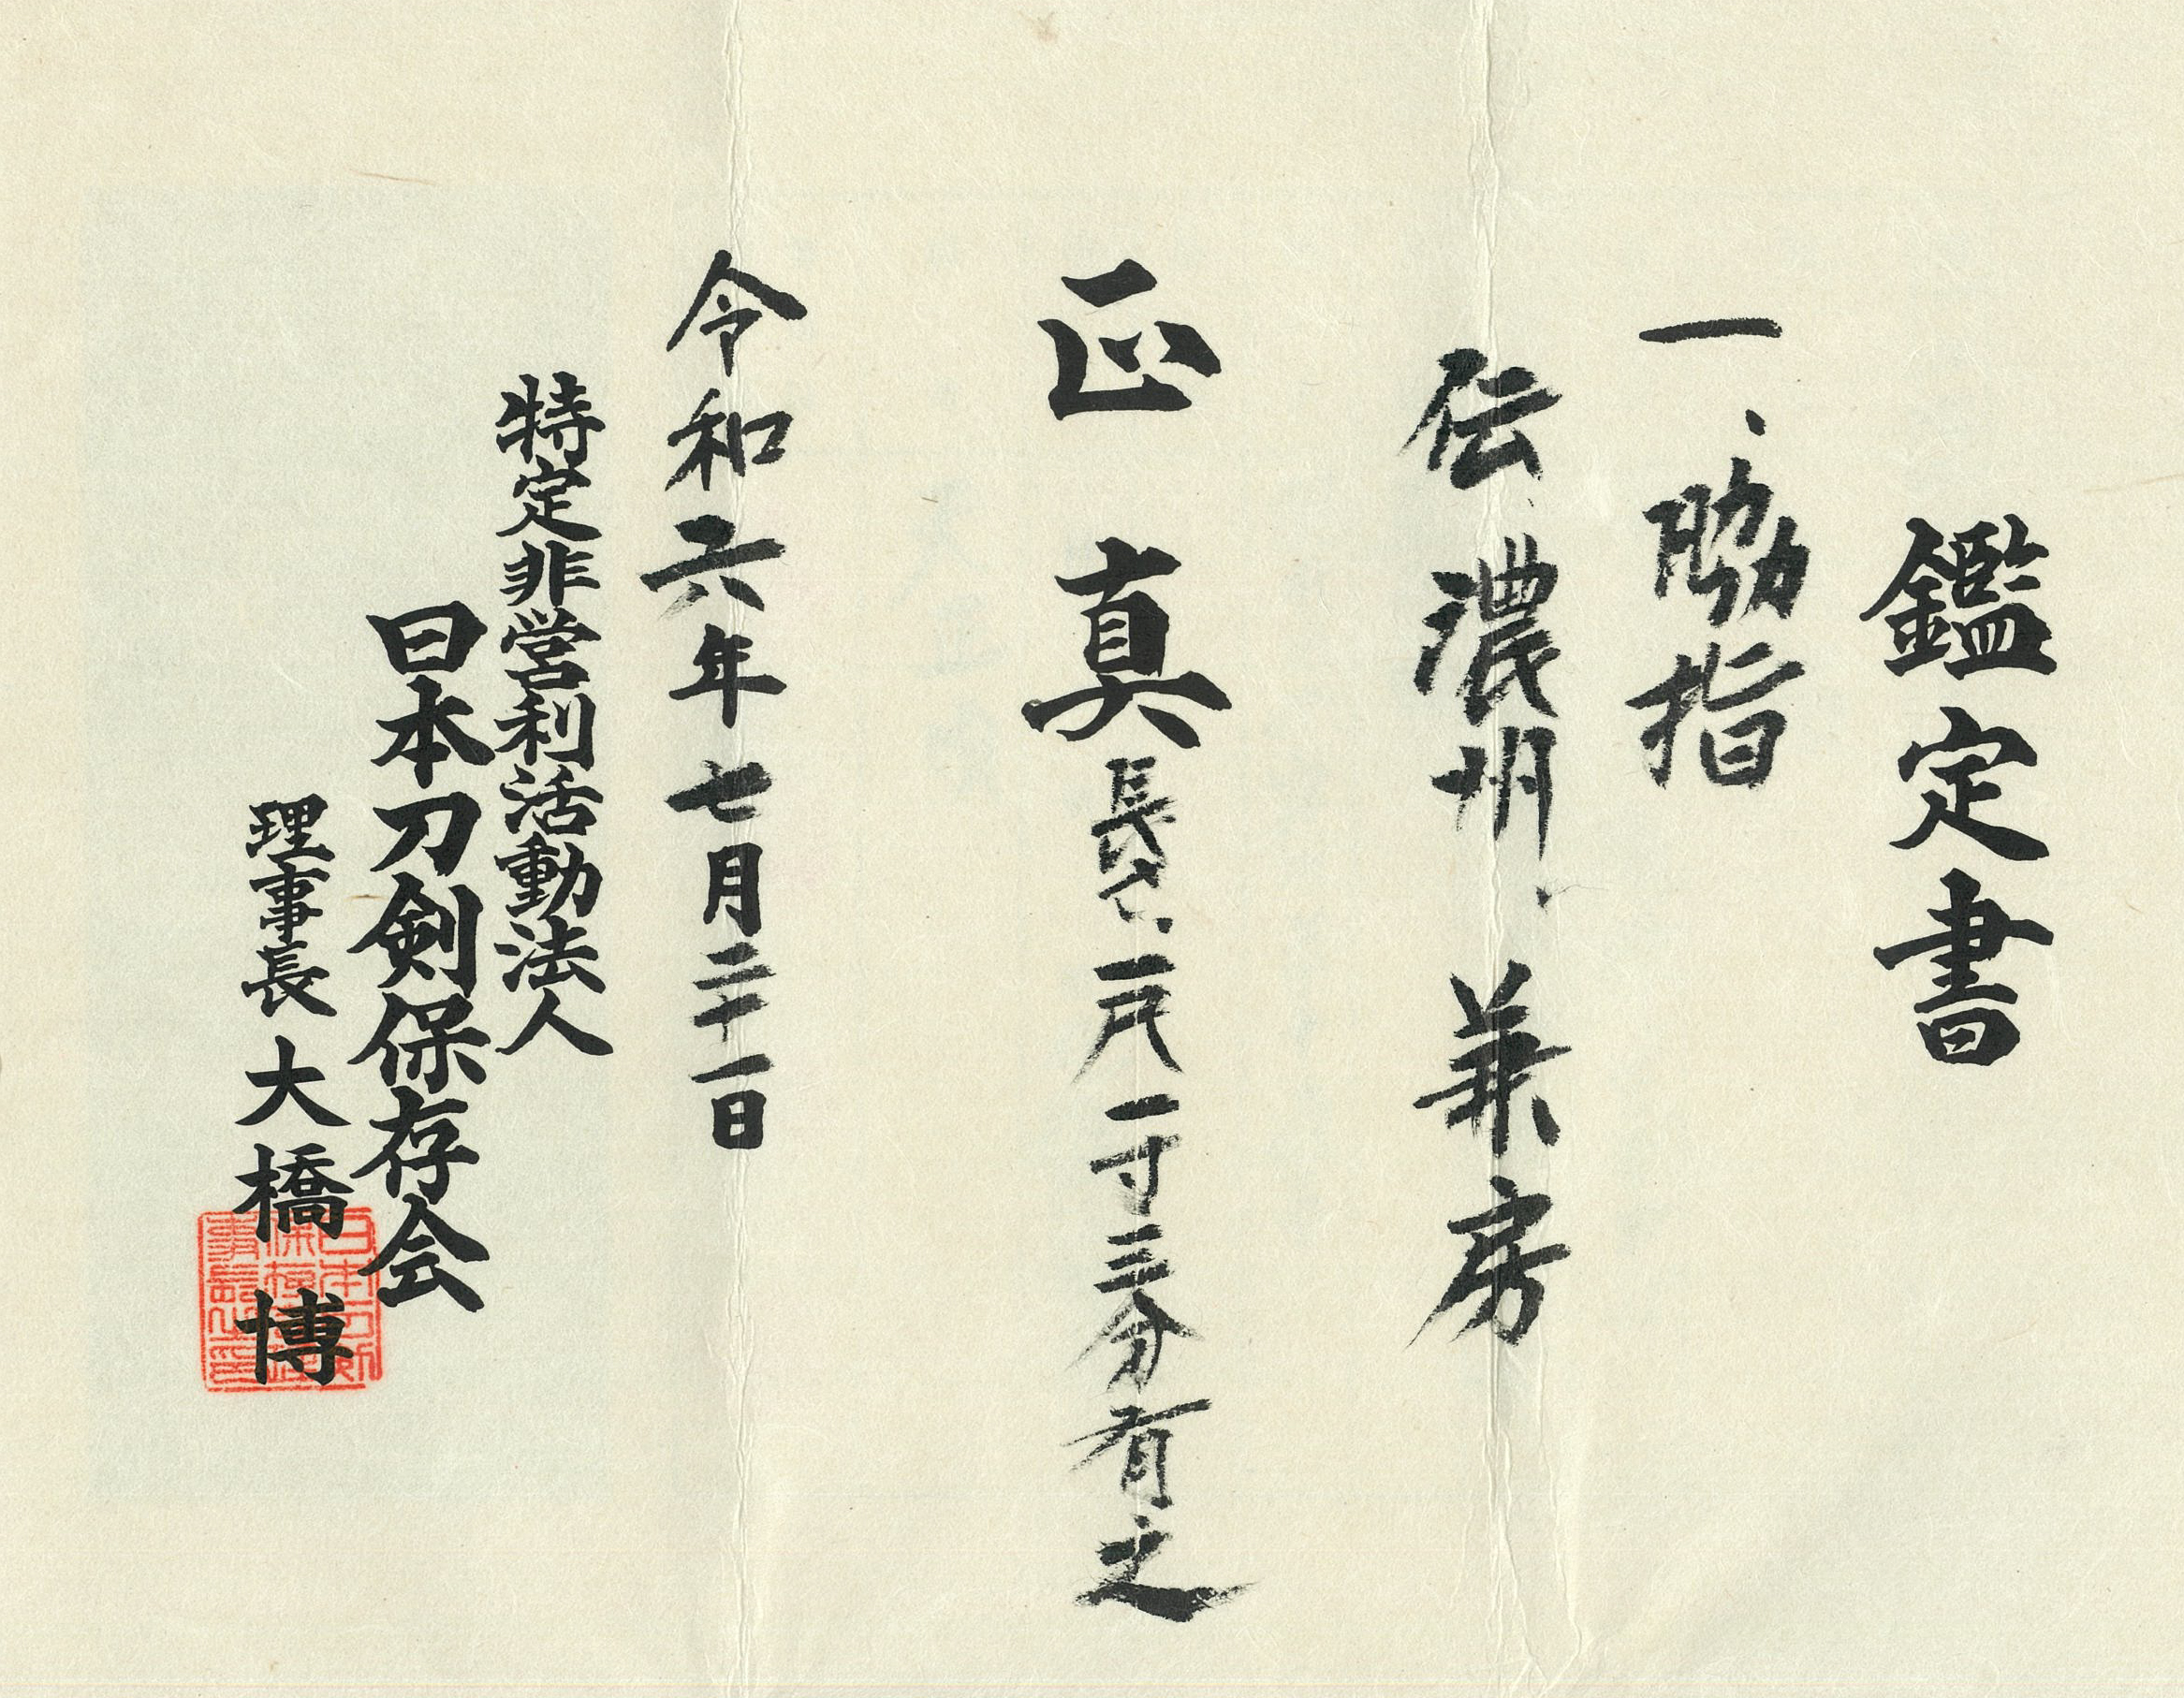 鑑定書
一、脇指
伝 濃州、兼房
正真 長さ、一尺一寸三分有之
令和六年七月二十一日
特定非営利活動法人
日本刀剣保存会
理事長 大橋 博